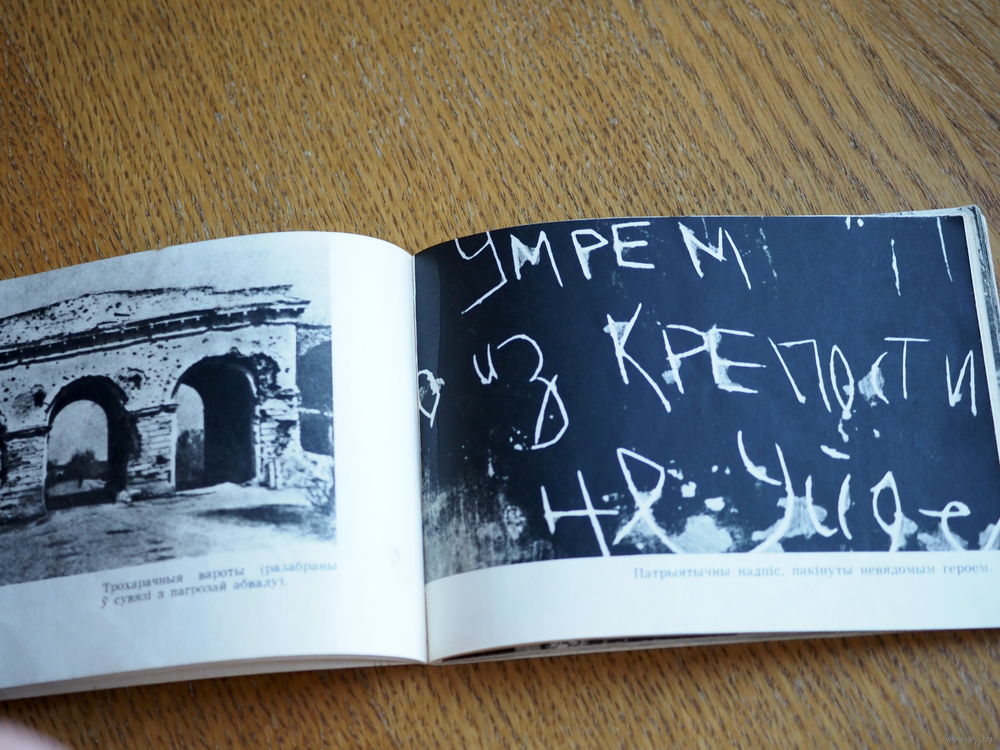 УМРЕМ
ИЗ КРЕПОСТИ
НЕ УЙДЕ
Трохарачныя вароты (разабраны
ў сувязі з пагрозай абвалу).
Патрыятычны надпіс, пакінуты невядомым героем.
www.ay.by